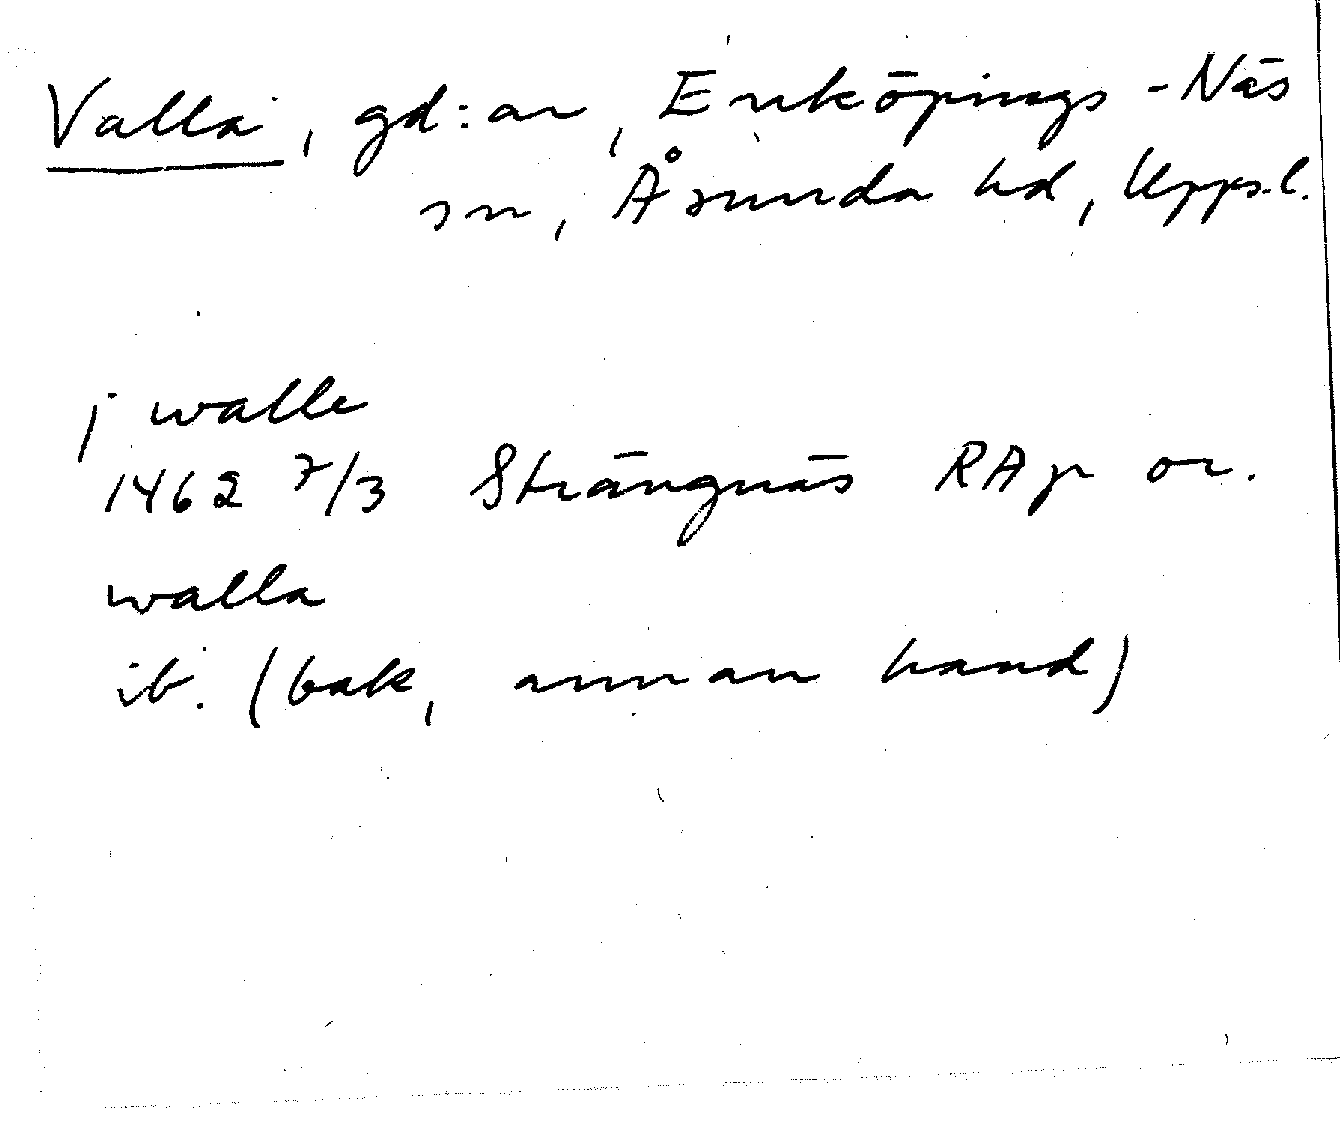 Valla, gd:ar, Enköpings-Näs
sn, Åsunda hd, Upps.l.
j walle
1462 7/3 Strängnäs RAp or.
walla
ib. (bak, annan hand)